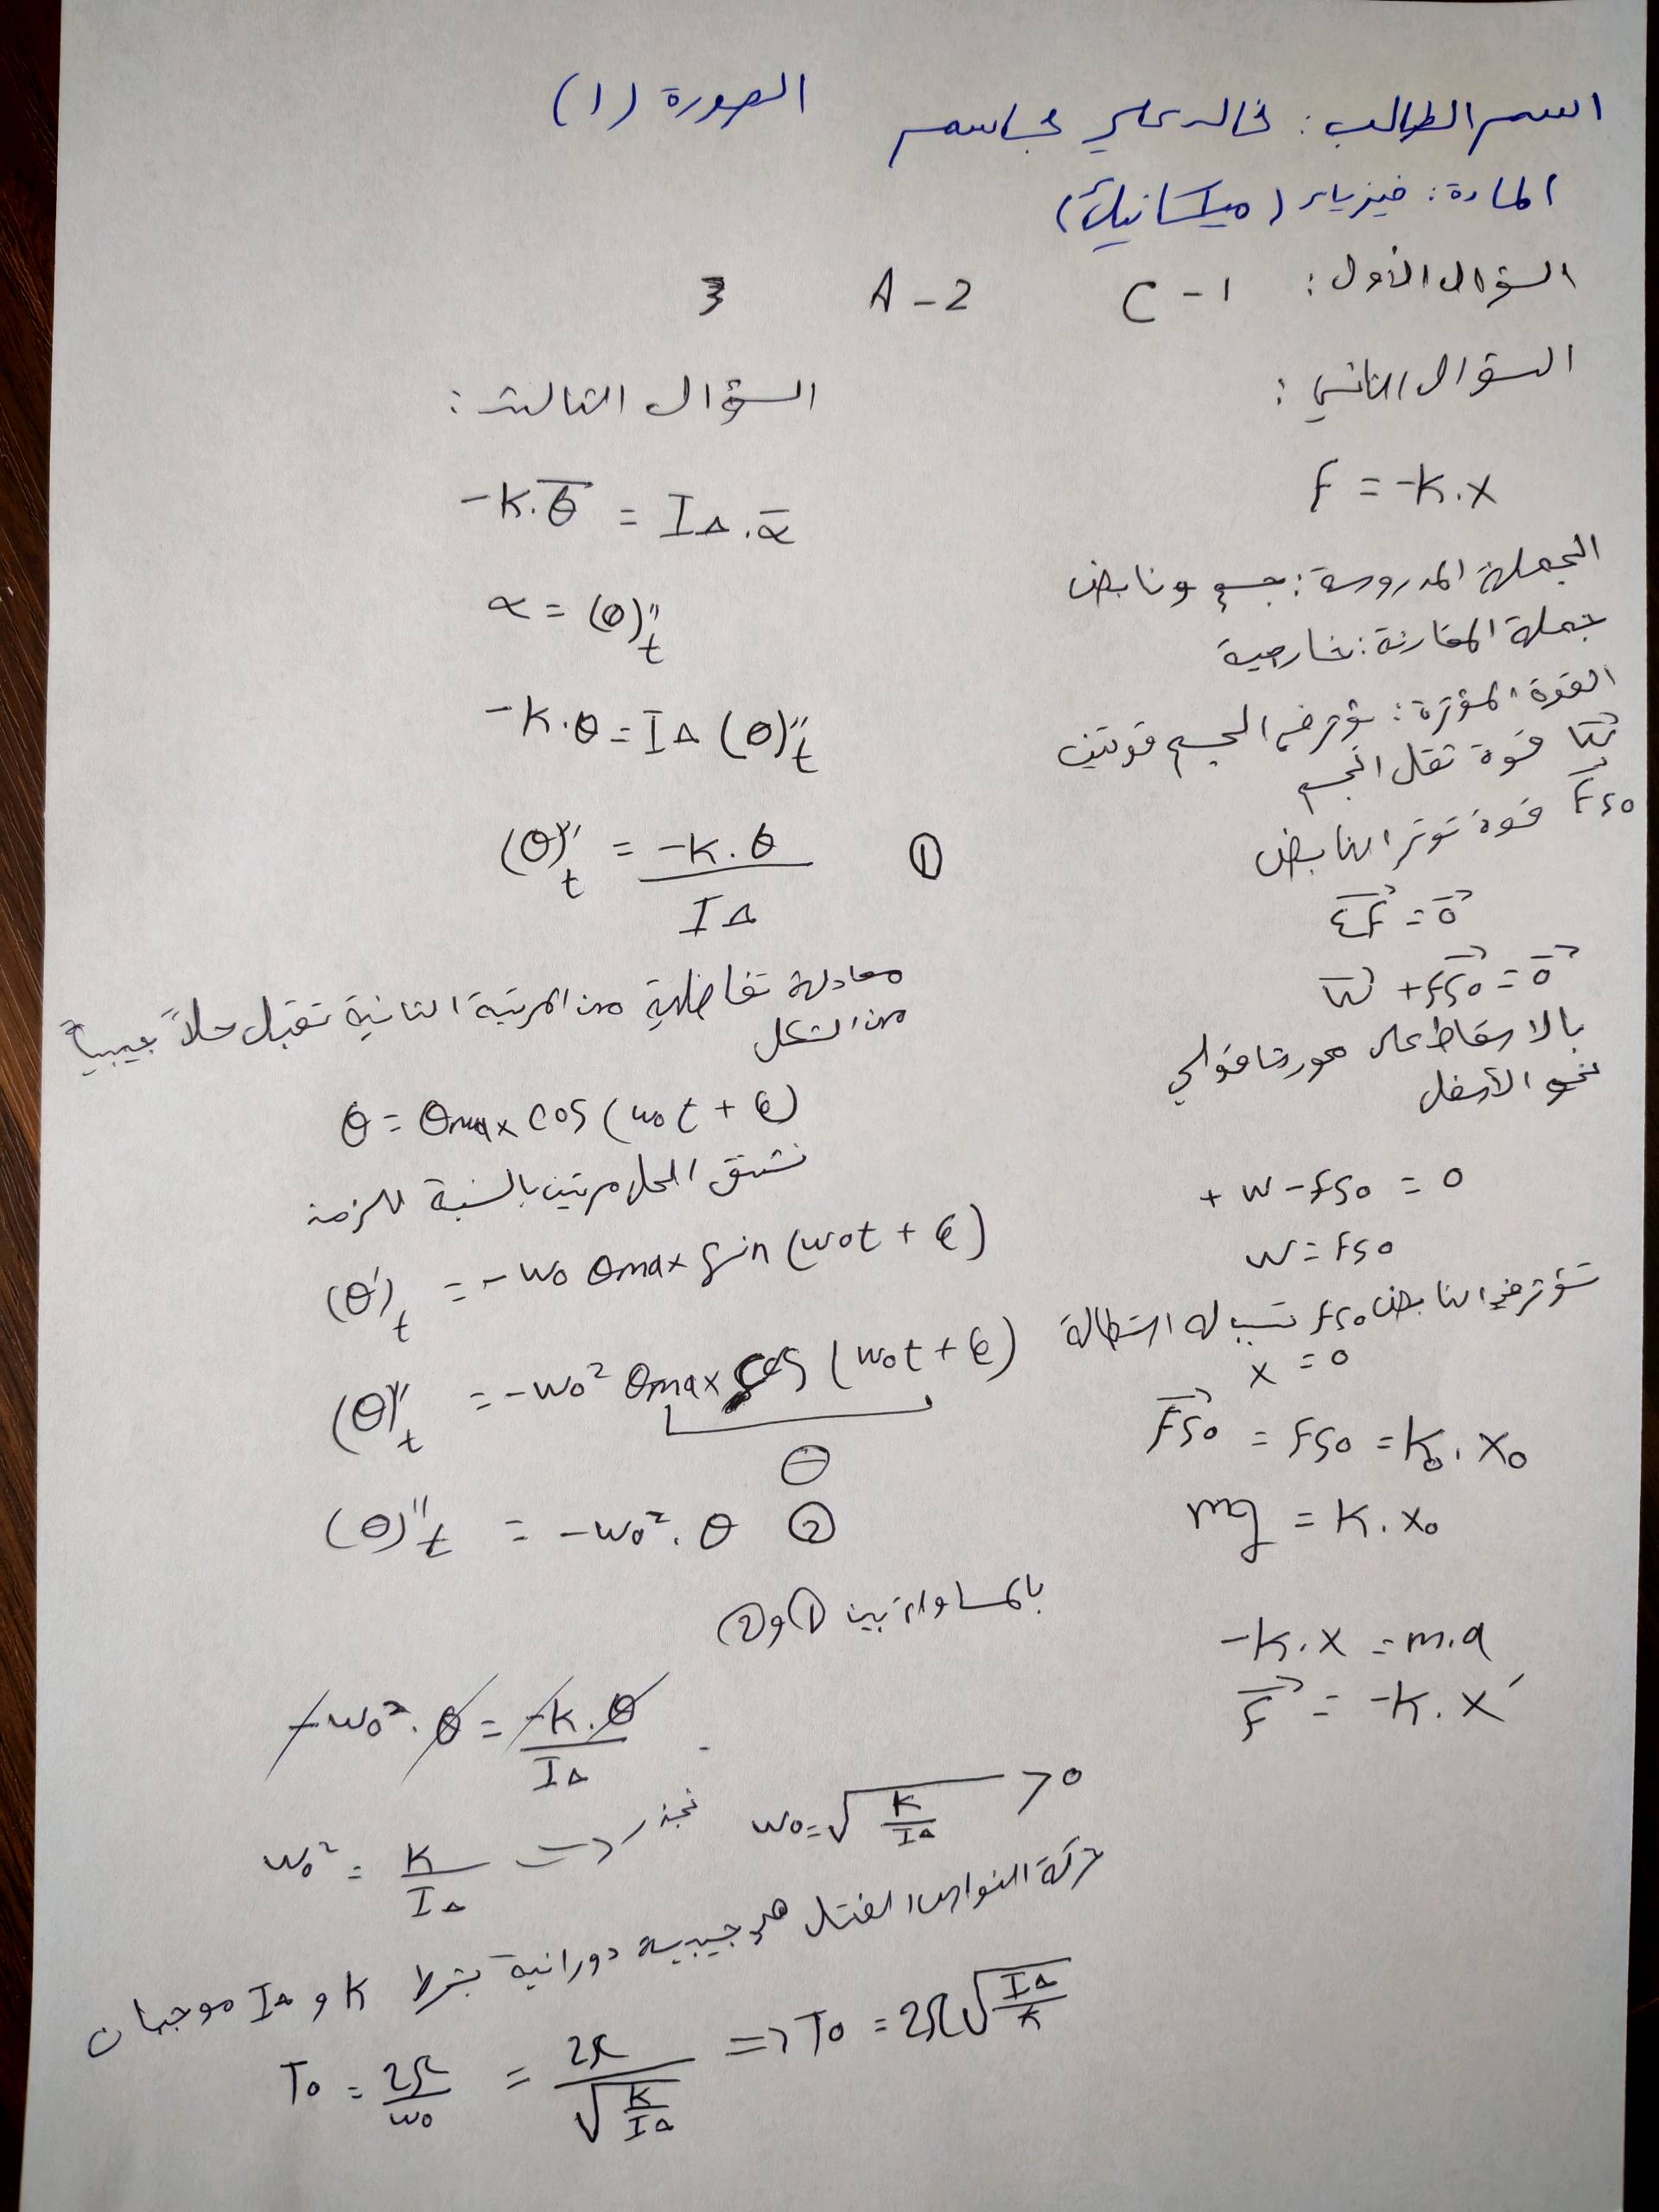 اسم الطالب: خالد علي جاسم
الصورة (1)
المادة: فيزياء (ميكانيك)
السؤال الأول: 1 - C    2 - A    3
السؤال الثاني:
F = -K.x
الجملة المدروسة: جسم ونابض
جملة المقارنة: خارجية
القوة المؤثرة: يؤثر في الجسم قوتين
W⃗ قوة ثقل الجسم
F⃗s₀ قوة توتر النابض
ΣF⃗ = 0⃗
W⃗ + F⃗s₀ = 0⃗
بالاسقاط على محور شاقولي
نحو الأسفل
+ W - Fs₀ = 0
W = Fs₀
تؤثر في النابض Fs₀ تسبب له استطالة
x = 0
F⃗s₀ = Fs₀ = K₀ . x₀
mg = K . x₀
-K . x = m.a
F⃗ = -K . x
السؤال الثالث:
-K.θ̄ = IΔ.ᾱ
α = (θ)''t
-K.θ = IΔ (θ)''t
(θ)''t = -K.θ / IΔ    ①
معادلة تفاضلية من المرتبة الثانية تقبل حلاً جيبياً
من الشكل
θ = θmax cos (ω₀t + φ)
نشتق الحل مرتين بالنسبة للزمن
(θ)'t = -ω₀ θmax sin (ω₀t + φ)
(θ)''t = -ω₀² θmax cos (ω₀t + φ)
θ
(θ)''t = -ω₀² . θ    ②
بالمساواة بين ① و ②
-ω₀² . θ = -K.θ / IΔ
ω₀² = K / IΔ ⇒ نجذر ω₀ = √(K / IΔ) > 0
حركة النواس الفتل هي جيبية دورانية بشرط K و IΔ موجبان
T₀ = 2π / ω₀ = 2π / √(K / IΔ) => T₀ = 2π√(IΔ / K)